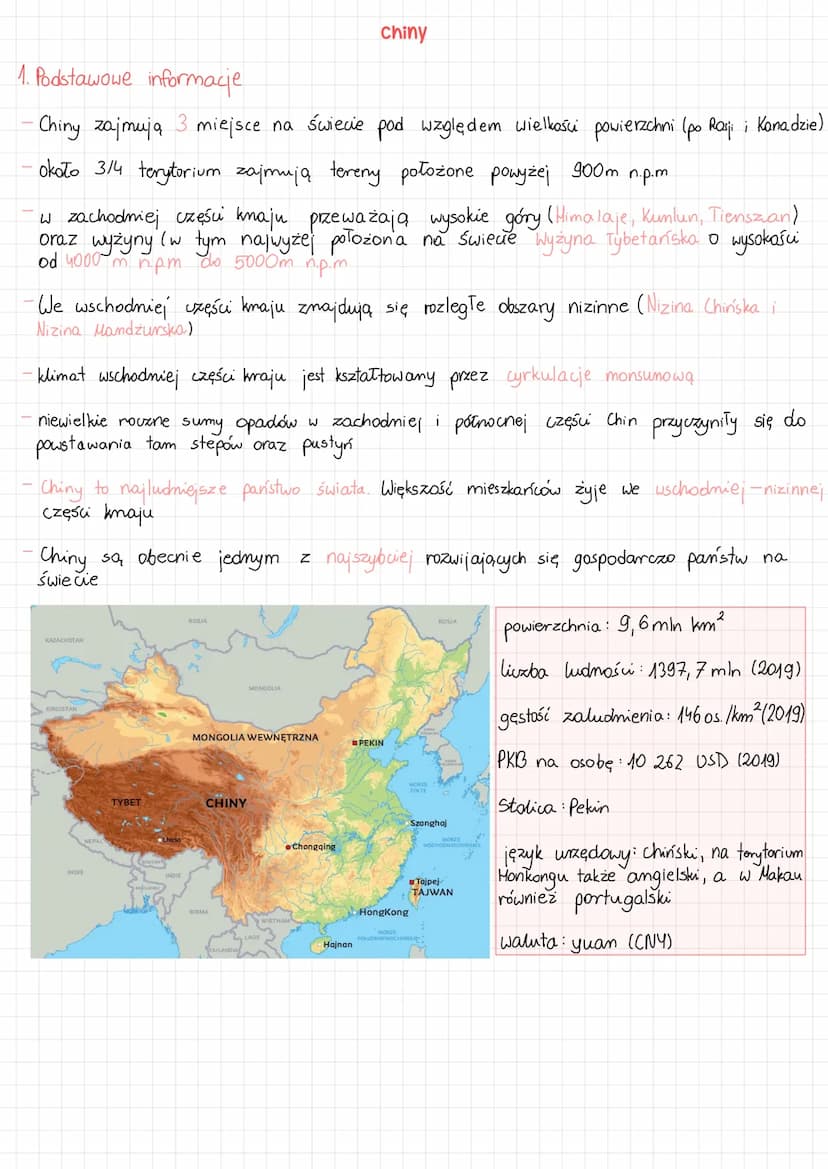 chiny
1. Podstawowe informacje
- Chiny zajmują 3 miejsce na świecie pod względem wielkości powierzchni (po Rosji i Kanadzie)
- około 3/4 terytorium zajmują tereny położone powyżej 900m n.p.m
- w zachodniej części kraju przeważają wysokie góry (Himalaje, Kunlun, Tienszan)
oraz wyżyny (w tym najwyżej położona na świecie Wyżyna Tybetańska o wysokości
od 4000 m n.p.m do 5000m n.p.m
- We wschodniej części kraju znajdują się rozległe obszary nizinne (Nizina Chińska i
Nizina Mandżurska)
- klimat wschodniej części kraju jest kształtowany przez cyrkulacje monsunową
- niewielkie roczne sumy opadów w zachodniej i północnej części Chin przyczyniły się do
powstawania tam stepów oraz pustyń
- Chiny to najludniejsze państwo świata. Większość mieszkańców żyje we wschodniej-nizinnej
części kraju
- Chiny są obecnie jednym z najszybciej rozwijających się gospodarczo państw na
świecie
ROSJA
ROSJA
KAZACHSTAN
MONGOLIA
KIRGISTAN
MONGOLIA WEWNĘTRZNA
PEKIN
MORZE
ŻÓŁTE
TYBET
CHINY
Szanghaj
NEPAL
Lhasa
Chongqing
MORZE
WSCHODNIOCHIŃSKIE
BHUTAN
INDIE
INDIE
Tajpej
TAJWAN
BIRMA
HongKong
WIETNAM
LAOS
MORZE
POŁUDNIOWOCHIŃSKIE
Hajnan
powierzchnia: 9,6 mln km²
liczba ludności: 1397,7 mln (2019)
gęstość zaludnienia: 146 os./km² (2019)
PKB na osobę: 10 262 USD (2019)
Stolica: Pekin
język urzędowy: chiński, na terytorium
Honkongu także angielski, a w Makau
również portugalski
waluta: yuan (CNY)